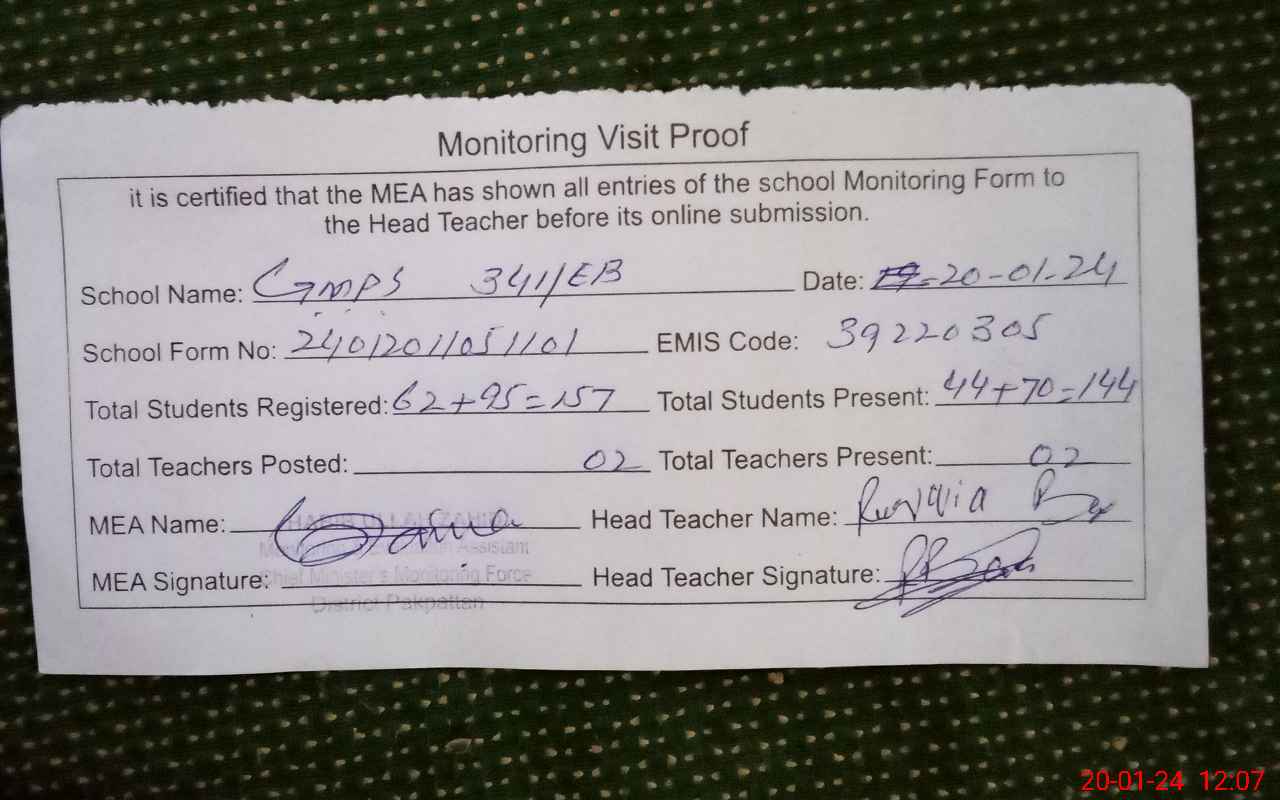 Monitoring Visit Proof
it is certified that the MEA has shown all entries of the school Monitoring Form to
the Head Teacher before its online submission.
School Name: GMPS 341/EB Date: 20-01-24
School Form No: 2401201105 1101 EMIS Code: 39220305
Total Students Registered: 62+95=157 Total Students Present: 44+70=144
Total Teachers Posted: 02 Total Teachers Present: 02
MEA Name: Head Teacher Name:
HABIB ULLAH ZAHID
Monitoring Assistant
MEA Signature: Head Teacher Signature:
Chief Minister's Monitoring Force
District Pakpattan
20-01-24 12:07